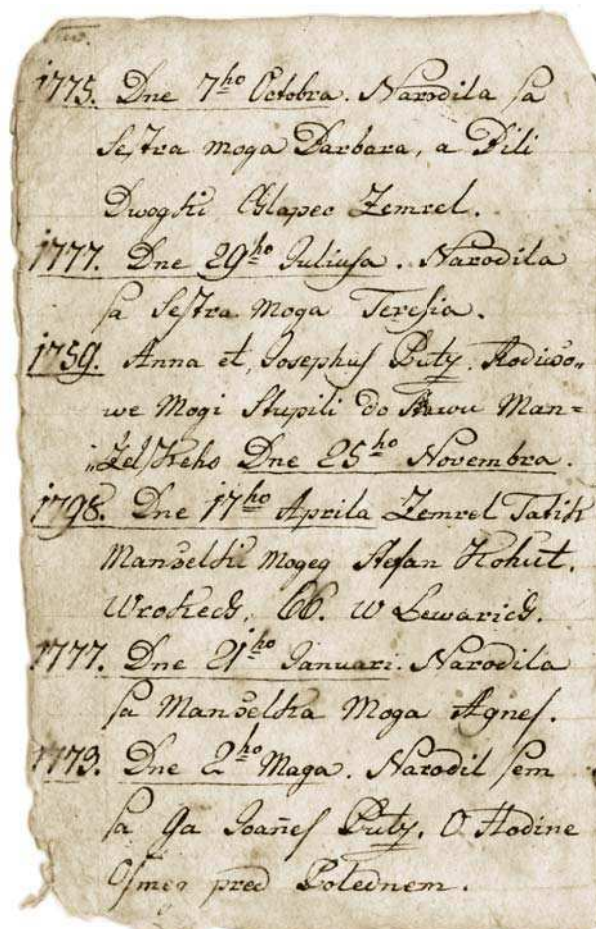 1775. Dne 7ho Octobra. Narodila sa
Sestra moga Barbara, a Bili
Dwogčki Chlapec Zemrel.
1777. Dne 29ho Juliusa. Narodila
sa Sestra Moga Teresia.
1759. Anna et, Josephus Buty. Rodičo„
we Mogi Stupili do Stawu Man=
„želskeho Dne 25ho Novembra.
1798. Dne 17ho Aprila Zemrel Tatik
Manželki Mogeg Stefan Kohut.
Wrokech, 66. W Lewarich.
1777. Dne 21ho Januari. Narodila
sa Manželka Moga Agnes.
1773. Dne 2ho Maga. Narodil sem
sa Ga Joañes Buty. O Hodine
Osmeg pred Polednem.